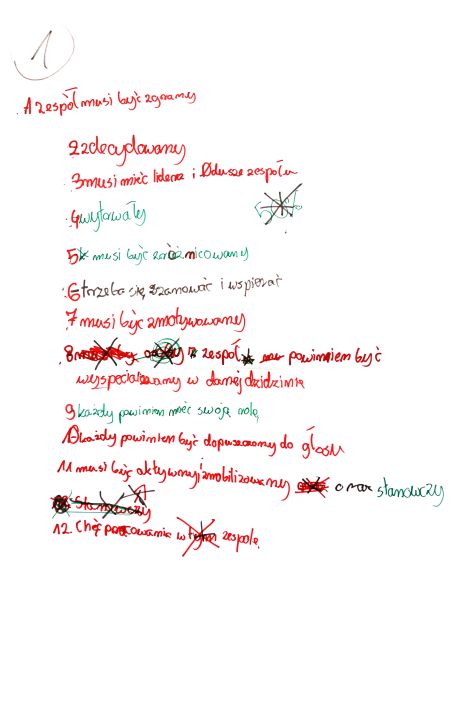 1
1 zespół musi być zgrany
2 zdecydowany
3 musi mieć lidera i Dduszę zespołu
4 wytrwały
5 musi być zróżnicowany
6 - trzeba się szanować i wspierać
7 musi być zmotywowany
8 zespół powinniem być
wyspecializowany w danej dzidzinie
9 każdy powinien mieć swoją rolę
10 każdy powinien być dopuszczony do głosu
11 musi być aktywny i zmobilizowany oraz stanowczy
Stanowczy
12. Chęć pracowania w zespole